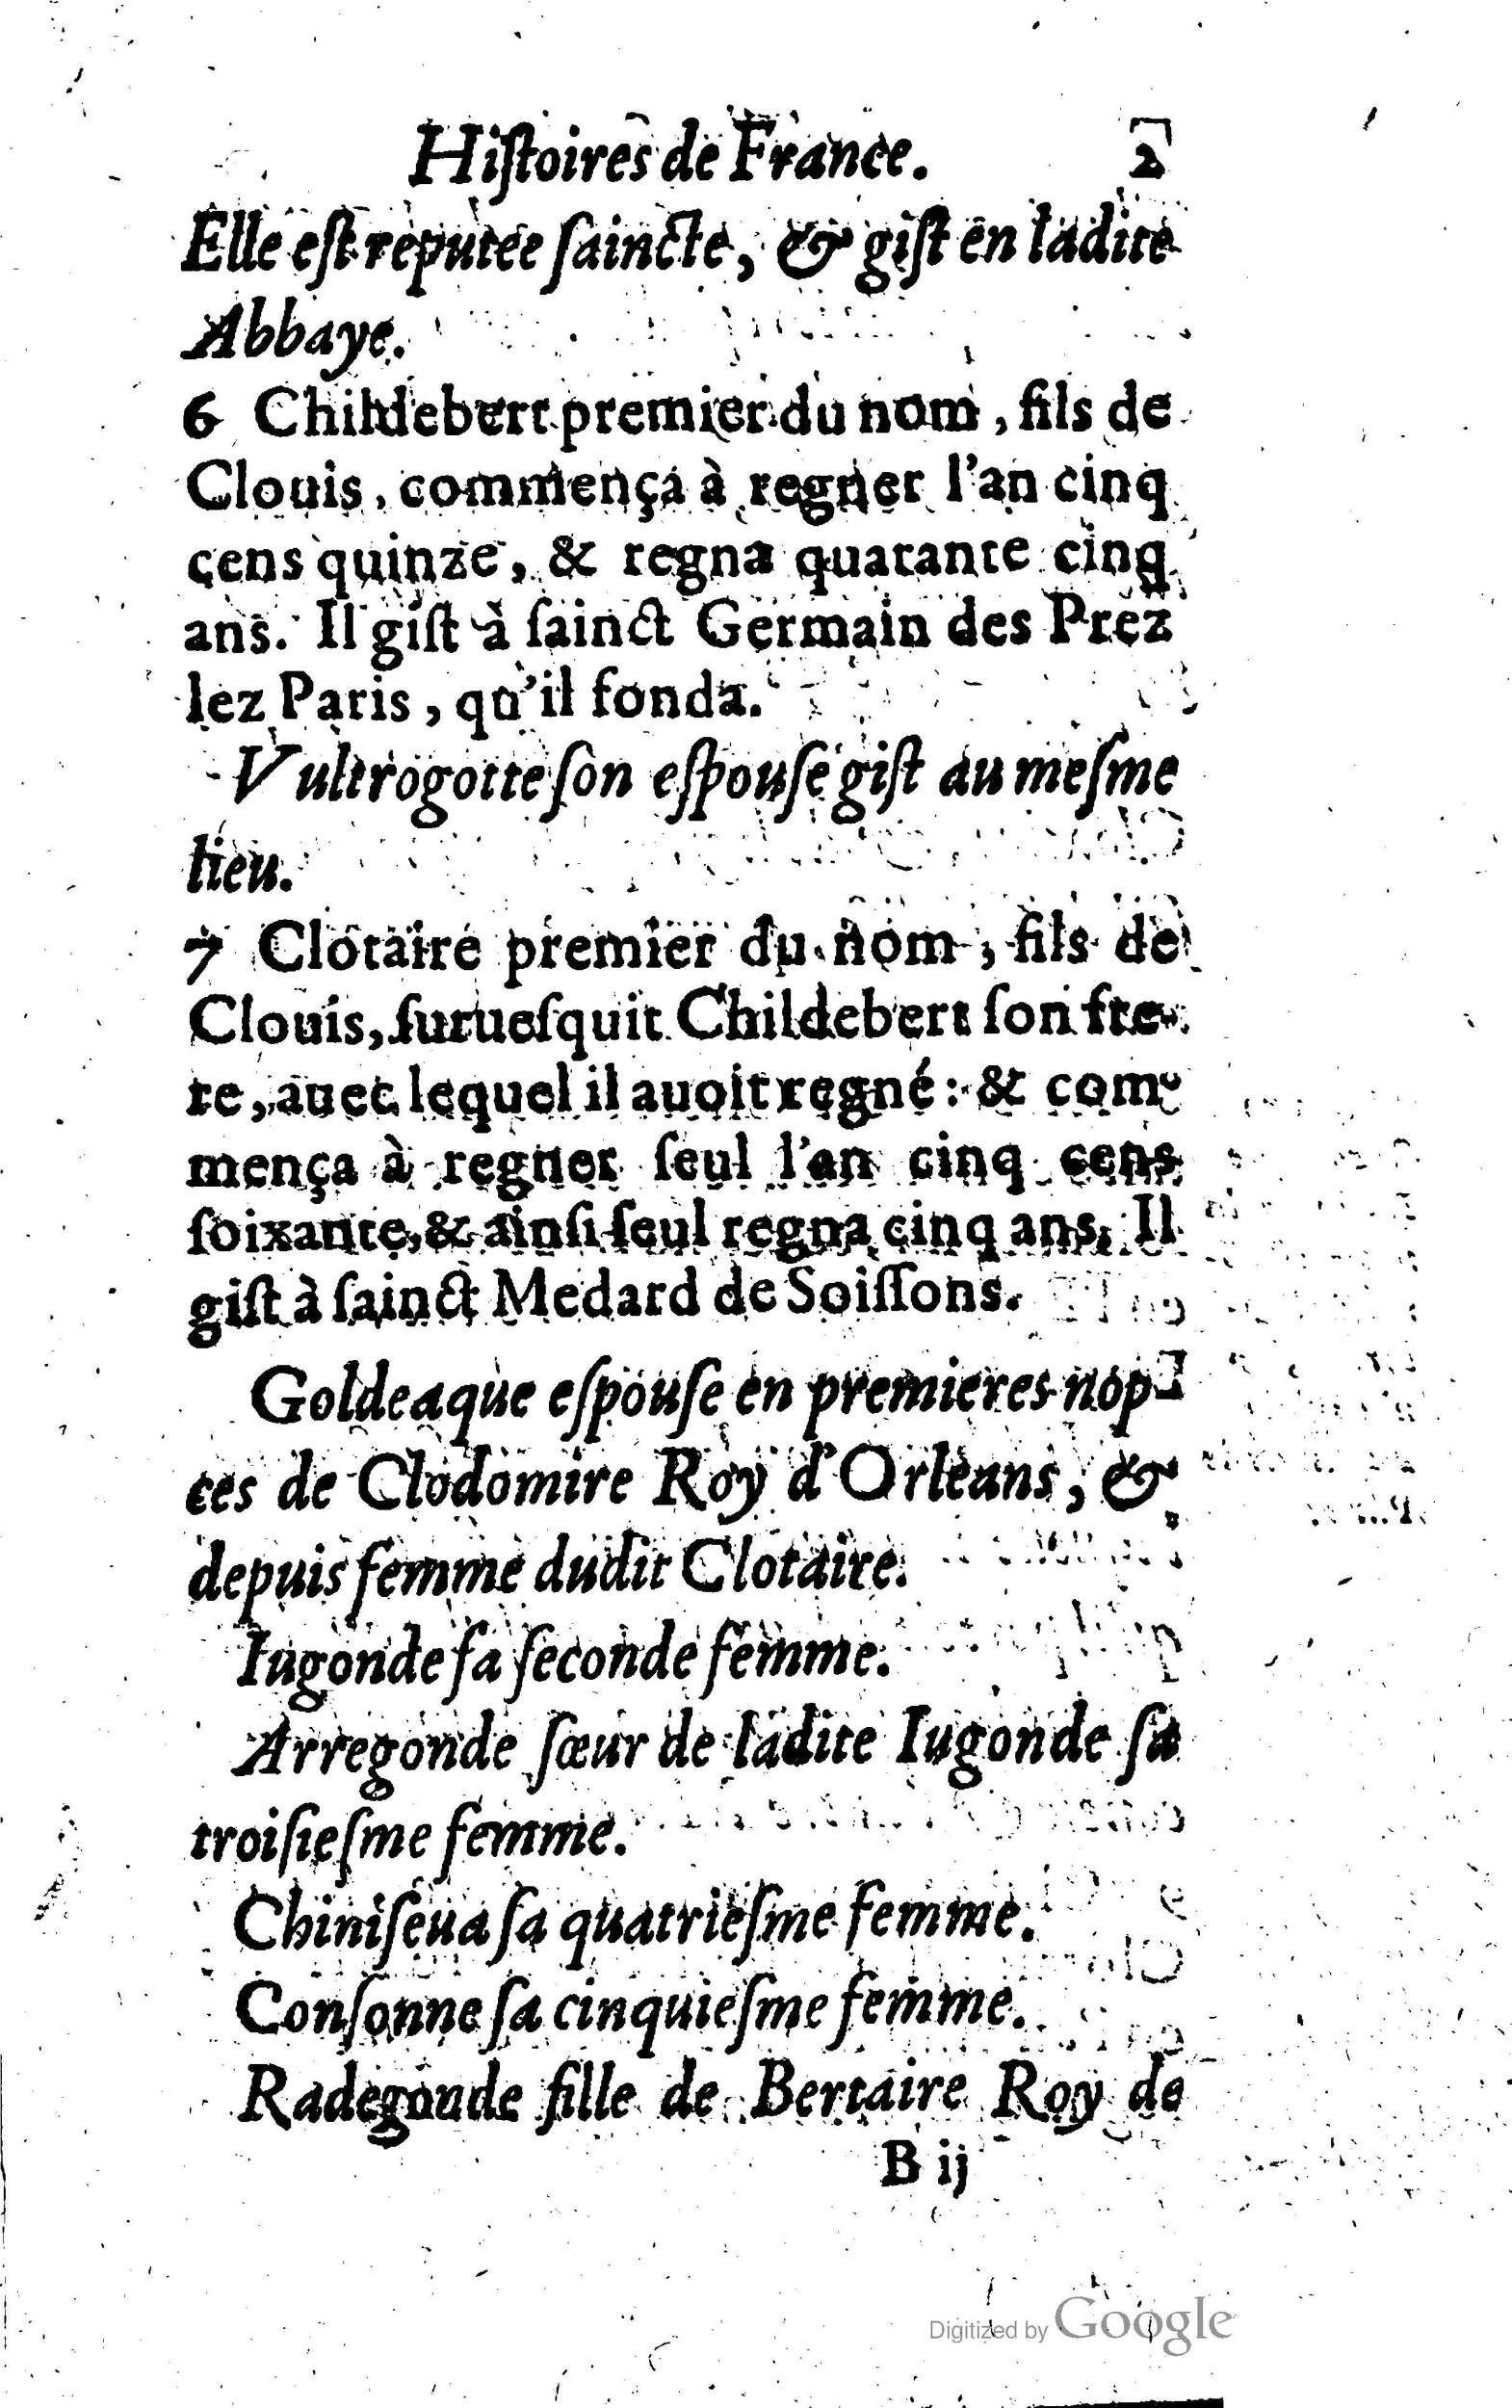 Hiſtoires de France. 2
Elle eſt reputee ſaincte, & giſt en ladite
Abbaye.
6 Childebert premier du nom, fils de
Clouis, commença à regner l'an cinq
cens quinze, & regna quarante cinq
ans. Il giſt à ſainct Germain des Prez
lez Paris, qu'il fonda.
Vultrogotte ſon eſpouſe giſt au meſme
lieu.
7 Clotaire premier du nom, fils de
Clouis, ſurueſquit Childebert ſon fre-
re, auec lequel il auoit regné: & com-
mença à regner ſeul l'an cinq cens
ſoixante, & ainſi ſeul regna cinq ans. Il
giſt à ſainct Medard de Soiſſons.
Goldeaque eſpouſe en premieres nop-
ces de Clodomire Roy d'Orleans, &
depuis femme dudit Clotaire.
Iugonde ſa ſeconde femme.
Arregonde ſœur de ladite Iugonde ſa
troiſieſme femme.
Chiniſeua ſa quatrieſme femme.
Conſonne ſa cinquieſme femme.
Radegonde fille de Bertaire Roy de
B ij
Digitized by Google